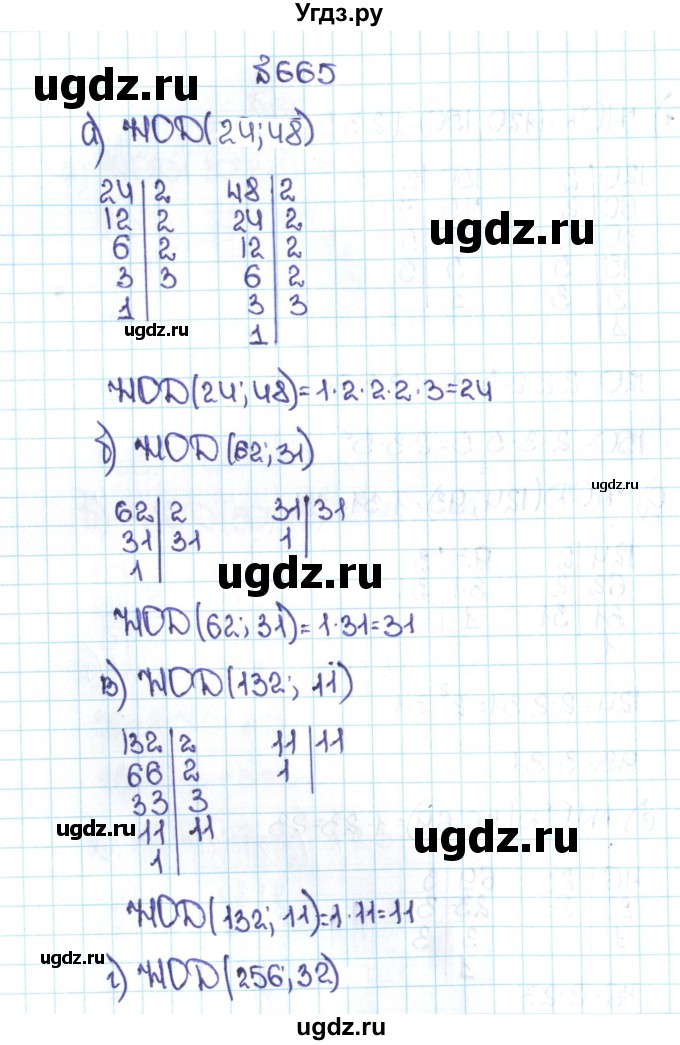 Угдз.ру
№665
ugdz.ru
а) НОД(24;48)
24|2 48|2
12|2 24|2
6|2 12|2
3|3 6|2
1| 3|3
1|
ugdz.ru
ugdz.ru
НОД(24;48)=1·2·2·2·3=24
б) НОД(62;31)
ugdz.ru
62|2 31|31
31|31 1|
1|
ugdz.ru
НОД(62;31)=1·31=31
в) НОД(132; 11)
132|2 11|11
66|2 1|
33|3
11|11
1|
ugdz.ru
ugdz.ru
НОД(132; 11)=1·11=11
ugdz.ru
г) НОД(256;32)
ugdz.ru